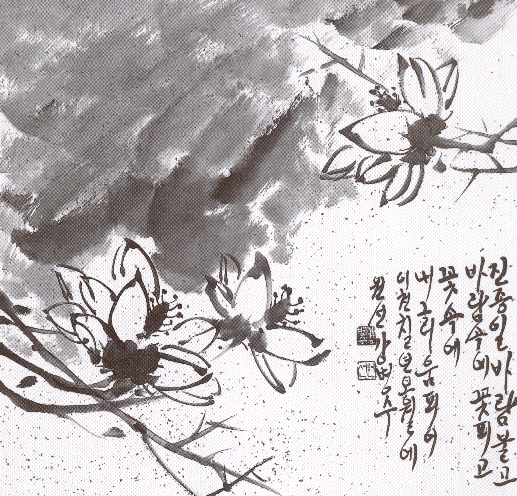 진종일 바람불고
바람속에 꽃피고
꽃속에
내 그리움 피어
이천칠년 오월에